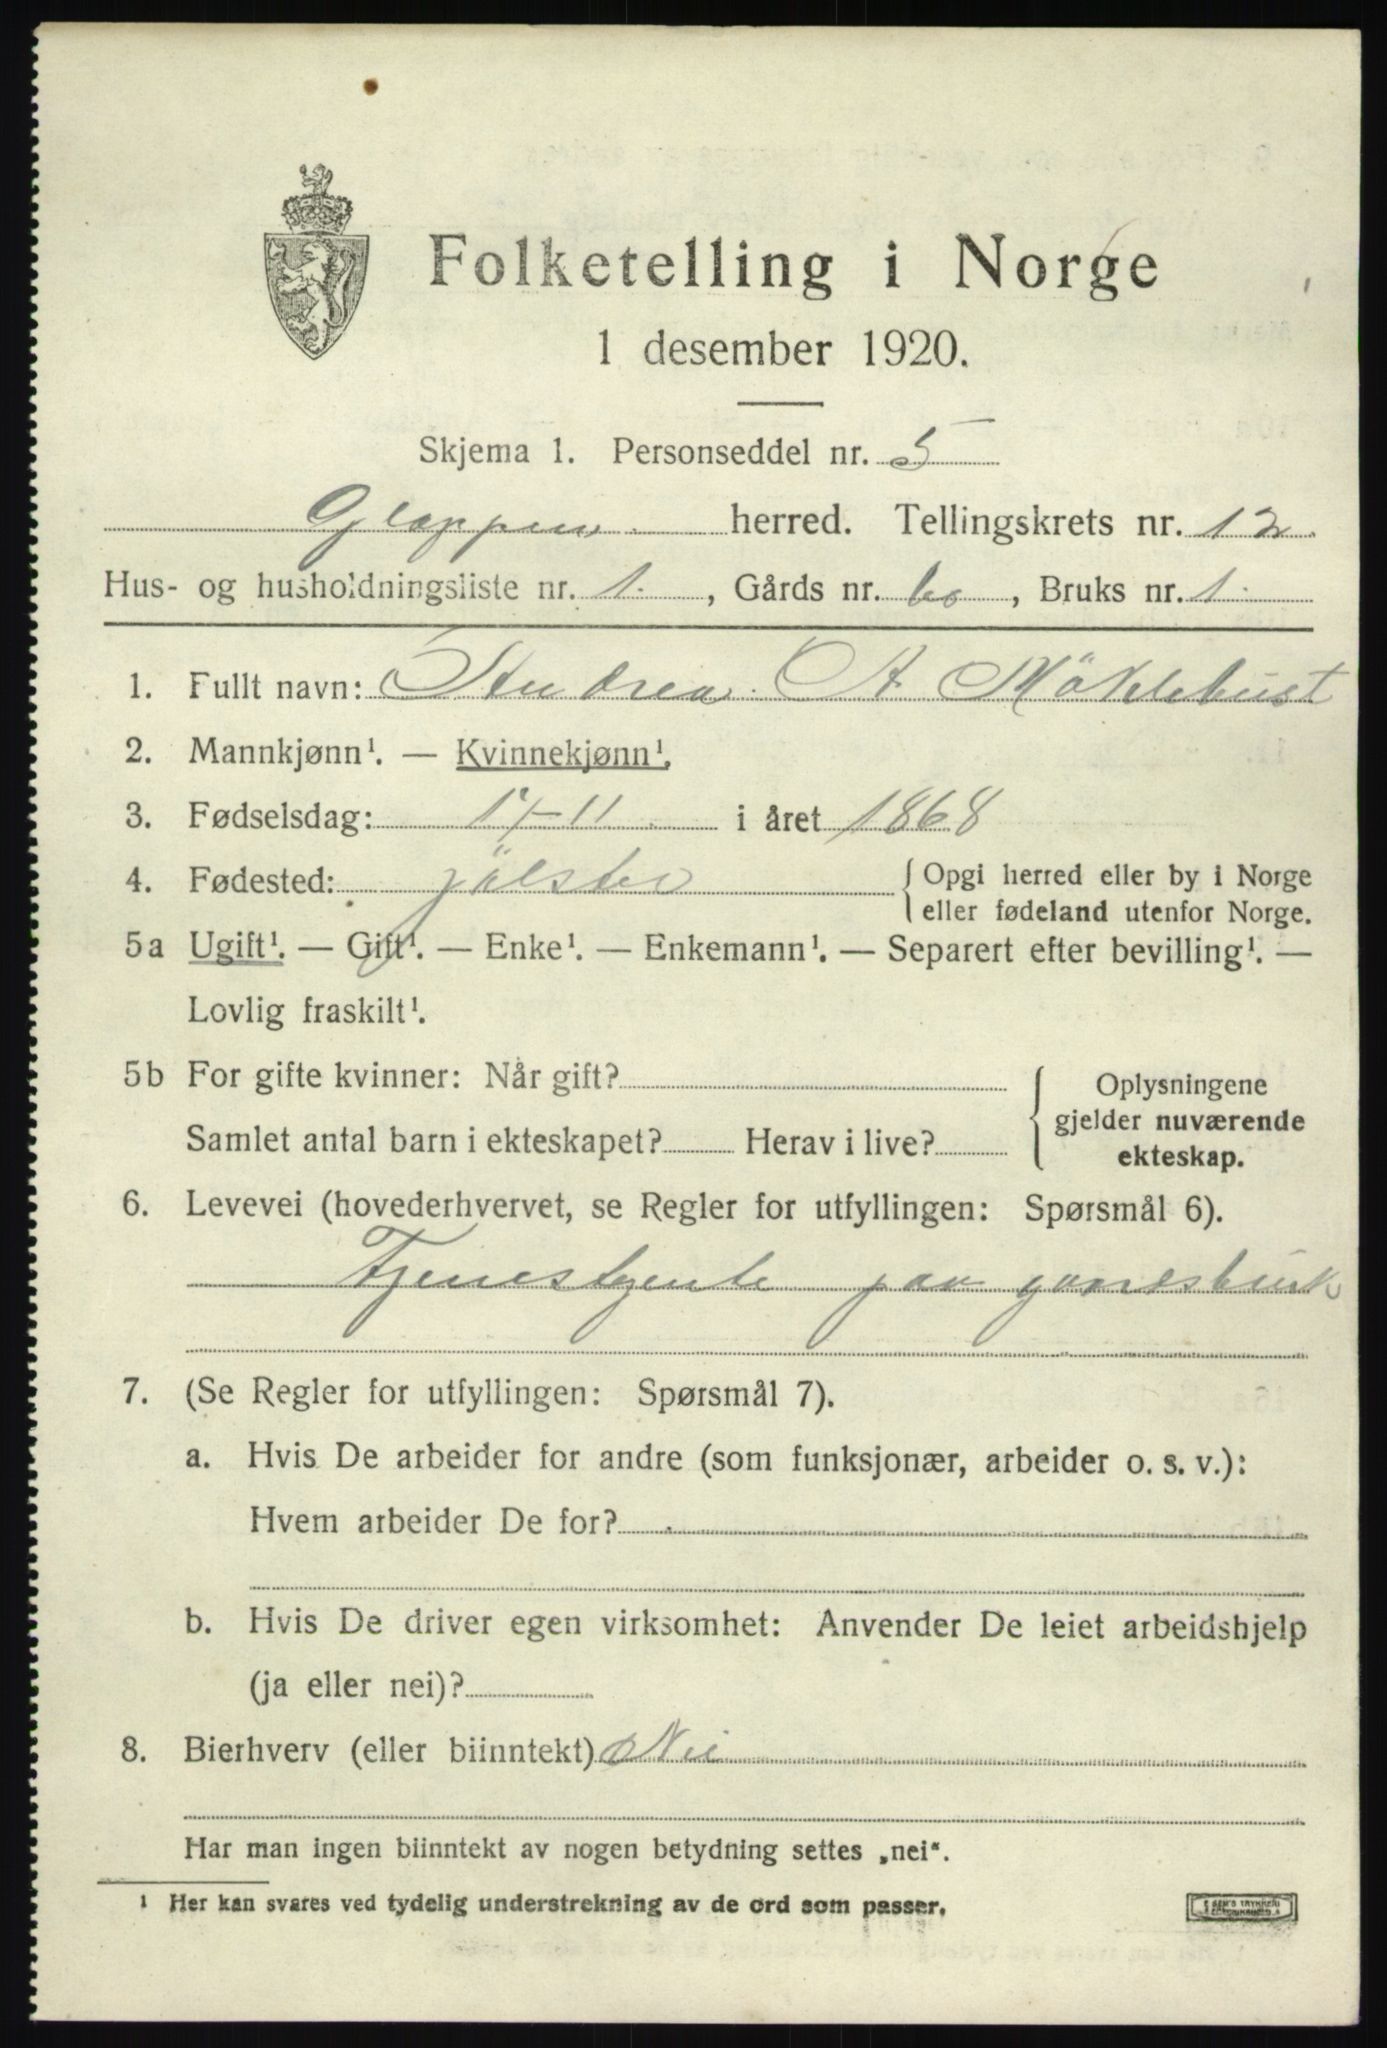 Folketelling i Norge
1 desember 1920.
Skjema 1. Personseddel nr. 5
Gloppen herred. Tellingskrets nr. 12
Hus- og husholdningsliste nr. 1. , Gårds nr. 60 , Bruks nr. 1.
1. Fullt navn: Andrea A Möklebust
2. Mannkjønn¹. — Kvinnekjønn¹.
3. Fødselsdag: 17-11 i året 1868
4. Fødested: jölster { Opgi herred eller by i Norge
eller fødeland utenfor Norge.
5a Ugift¹. — Gift¹. — Enke¹. — Enkemann¹. — Separert efter bevilling¹. —
Lovlig fraskilt¹.
5b For gifte kvinner: Når gift? { Oplysningene
gjelder nuværende
Samlet antal barn i ekteskapet? Herav i live? ekteskap.
6. Levevei (hovederhvervet, se Regler for utfyllingen: Spørsmål 6).
Tjenestgente paa gaardsbruk
7. (Se Regler for utfyllingen: Spørsmål 7).
a. Hvis De arbeider for andre (som funksjonær, arbeider o. s. v.):
Hvem arbeider De for?
b. Hvis De driver egen virksomhet: Anvender De leiet arbeidshjelp
(ja eller nei)?
8. Bierhverv (eller biinntekt) Nei
Har man ingen biinntekt av nogen betydning settes „nei".
¹ Her kan svares ved tydelig understrekning av de ord som passer.